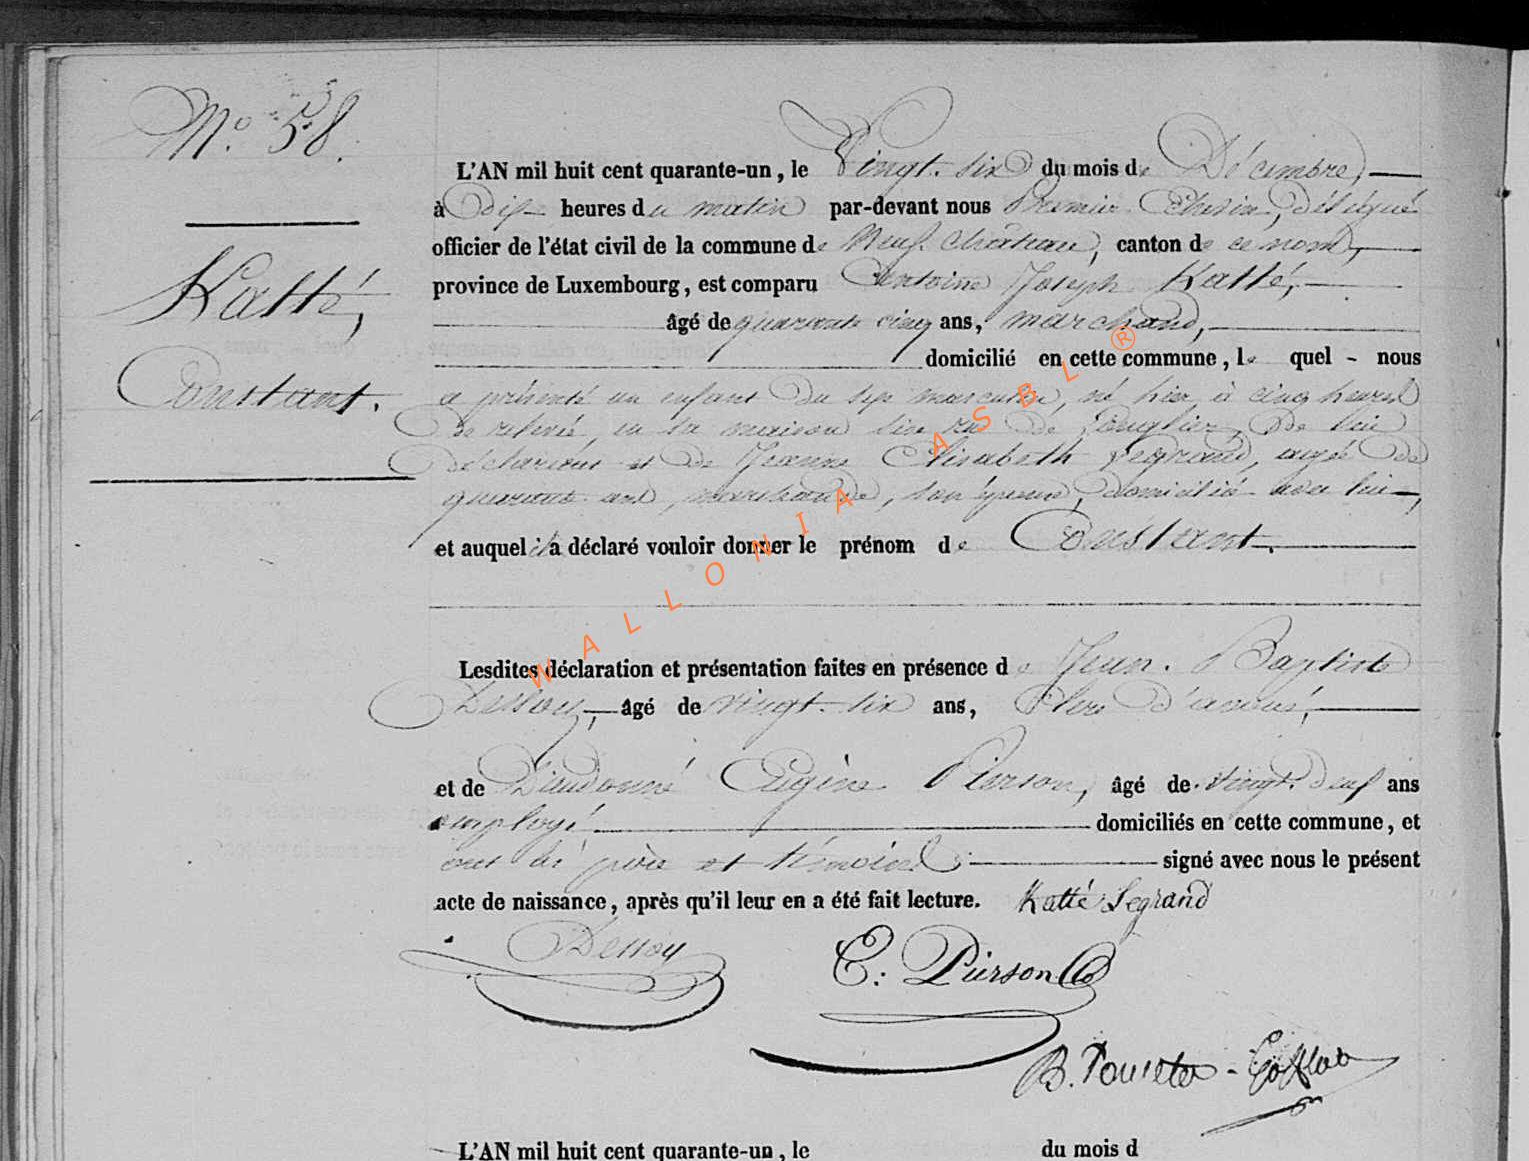 N.° 58.
Katté,
Constant.
L'AN mil huit cent quarante-un, le Vingt-six du mois de Décembre,
à dix heures du matin par-devant nous Premier Echevin, délégué
officier de l'état civil de la commune de Neufchâteau, canton de ce nom,
province de Luxembourg, est comparu Antoine Joseph Katté,
âgé de quarante cinq ans, marchand,
domicilié en cette commune, lequel nous
a présenté un enfant du sexe masculin, né hier à cinq heures
de relevée, en sa maison sise rue de Longlier, de lui
déclarant et de Jeanne Elisabeth Legrand, agée de
quarante ans, marchande, son épouse, domiciliée avec lui,
et auquel il a déclaré vouloir donner le prénom de Constant.
Lesdites déclaration et présentation faites en présence de Jean-Baptiste
Dessoy, âgé de vingt-six ans, Clerc d'avoué,
et de Dieudonné Eugène Pierson, âgé de vingt-neuf ans
employé domiciliés en cette commune, et
ont les père et témoins signé avec nous le présent
acte de naissance, après qu'il leur en a été fait lecture. Katté Legrand
Dessoy
E. Pierson
B.
L'AN mil huit cent quarante-un, le du mois d
WALLONIA ASBL ®